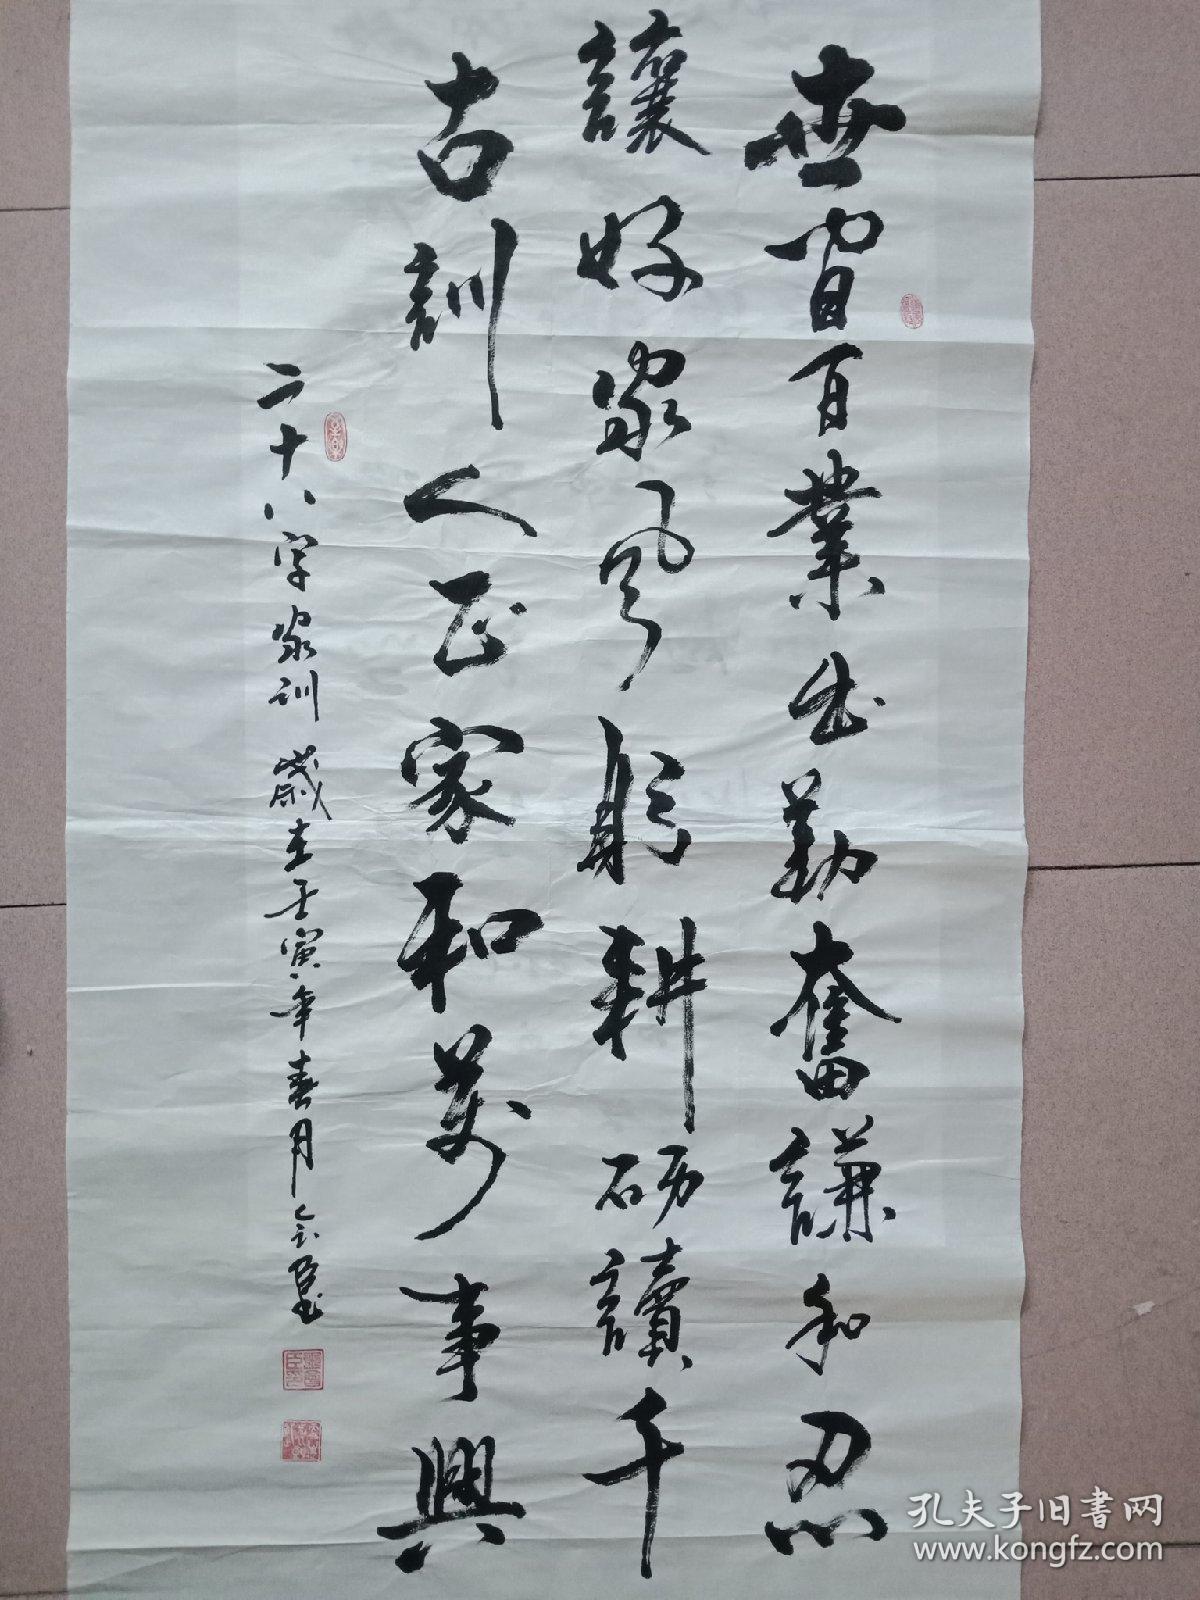 世間百業出勤奮謙和忍
讓好家風躬耕砺讀千
古訓人正家和萬事興
二十八字家训歲在壬寅年春月会臣书
孔夫子旧書网
www.kongfz.com